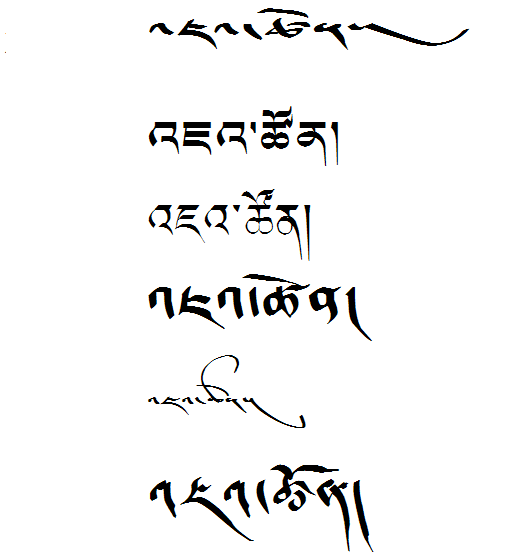 འཇའ་ཚོན།
འཇའ་ཚོན།
འཇའ་ཚོན།
འཇའ་ཚོན།
འཇའ་ཚོན།
འཇའ་ཚོན།